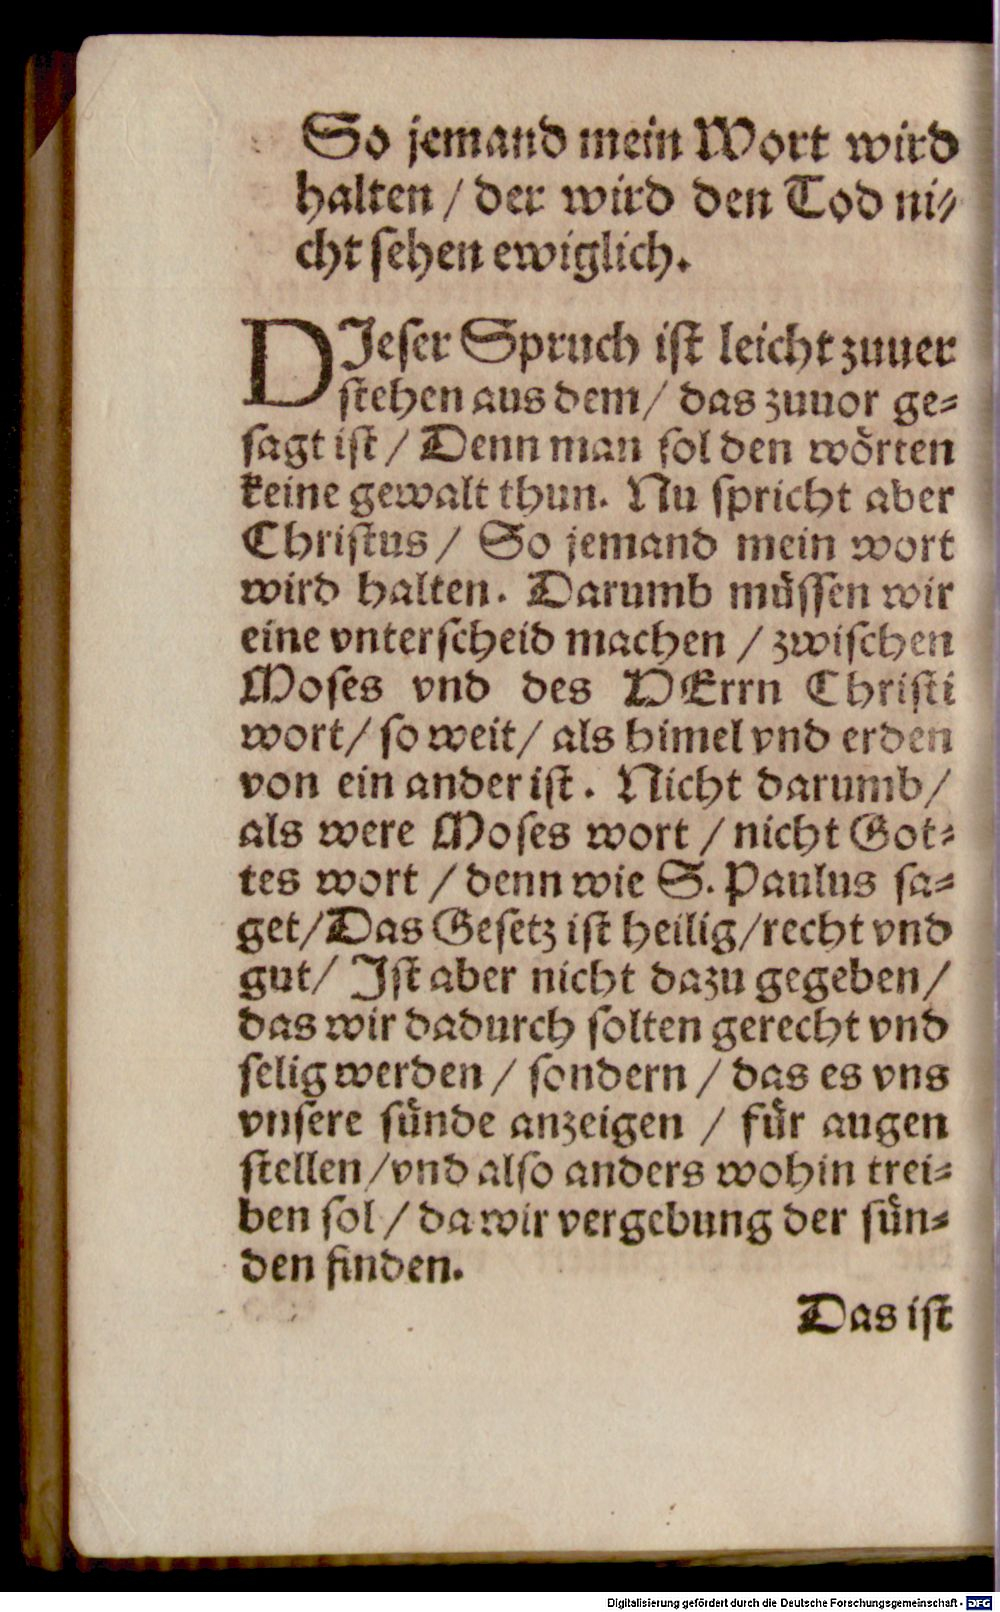 So jemand mein Wort wird
halten / der wird den Tod ni⸗
cht ſehen ewiglich.
DJeſer Spruch iſt leicht zuuer
ſtehen aus dem / das zuuor ge⸗
ſagt iſt / Denn man ſol den woͤrten
keine gewalt thun. Nu ſpricht aber
Chriſtus / So jemand mein wort
wird halten. Darumb muͤſſen wir
eine vnterſcheid machen / zwiſchen
Moſes vnd des HErrn Chriſti
wort / ſo weit / als himel vnd erden
von ein ander iſt. Nicht darumb /
als were Moſes wort / nicht Got⸗
tes wort / denn wie S. Paulus ſa⸗
get / Das Geſetz iſt heilig / recht vnd
gut / Jſt aber nicht dazu gegeben /
das wir dadurch ſolten gerecht vnd
ſelig werden / ſondern / das es vns
vnſere ſuͤnde anzeigen / fuͤr augen
ſtellen / vnd alſo anders wohin trei⸗
ben ſol / da wir vergebung der ſuͤn⸗
den finden.
Das iſt
Digitalisierung gefördert durch die Deutsche Forschungsgemeinschaft - DFG